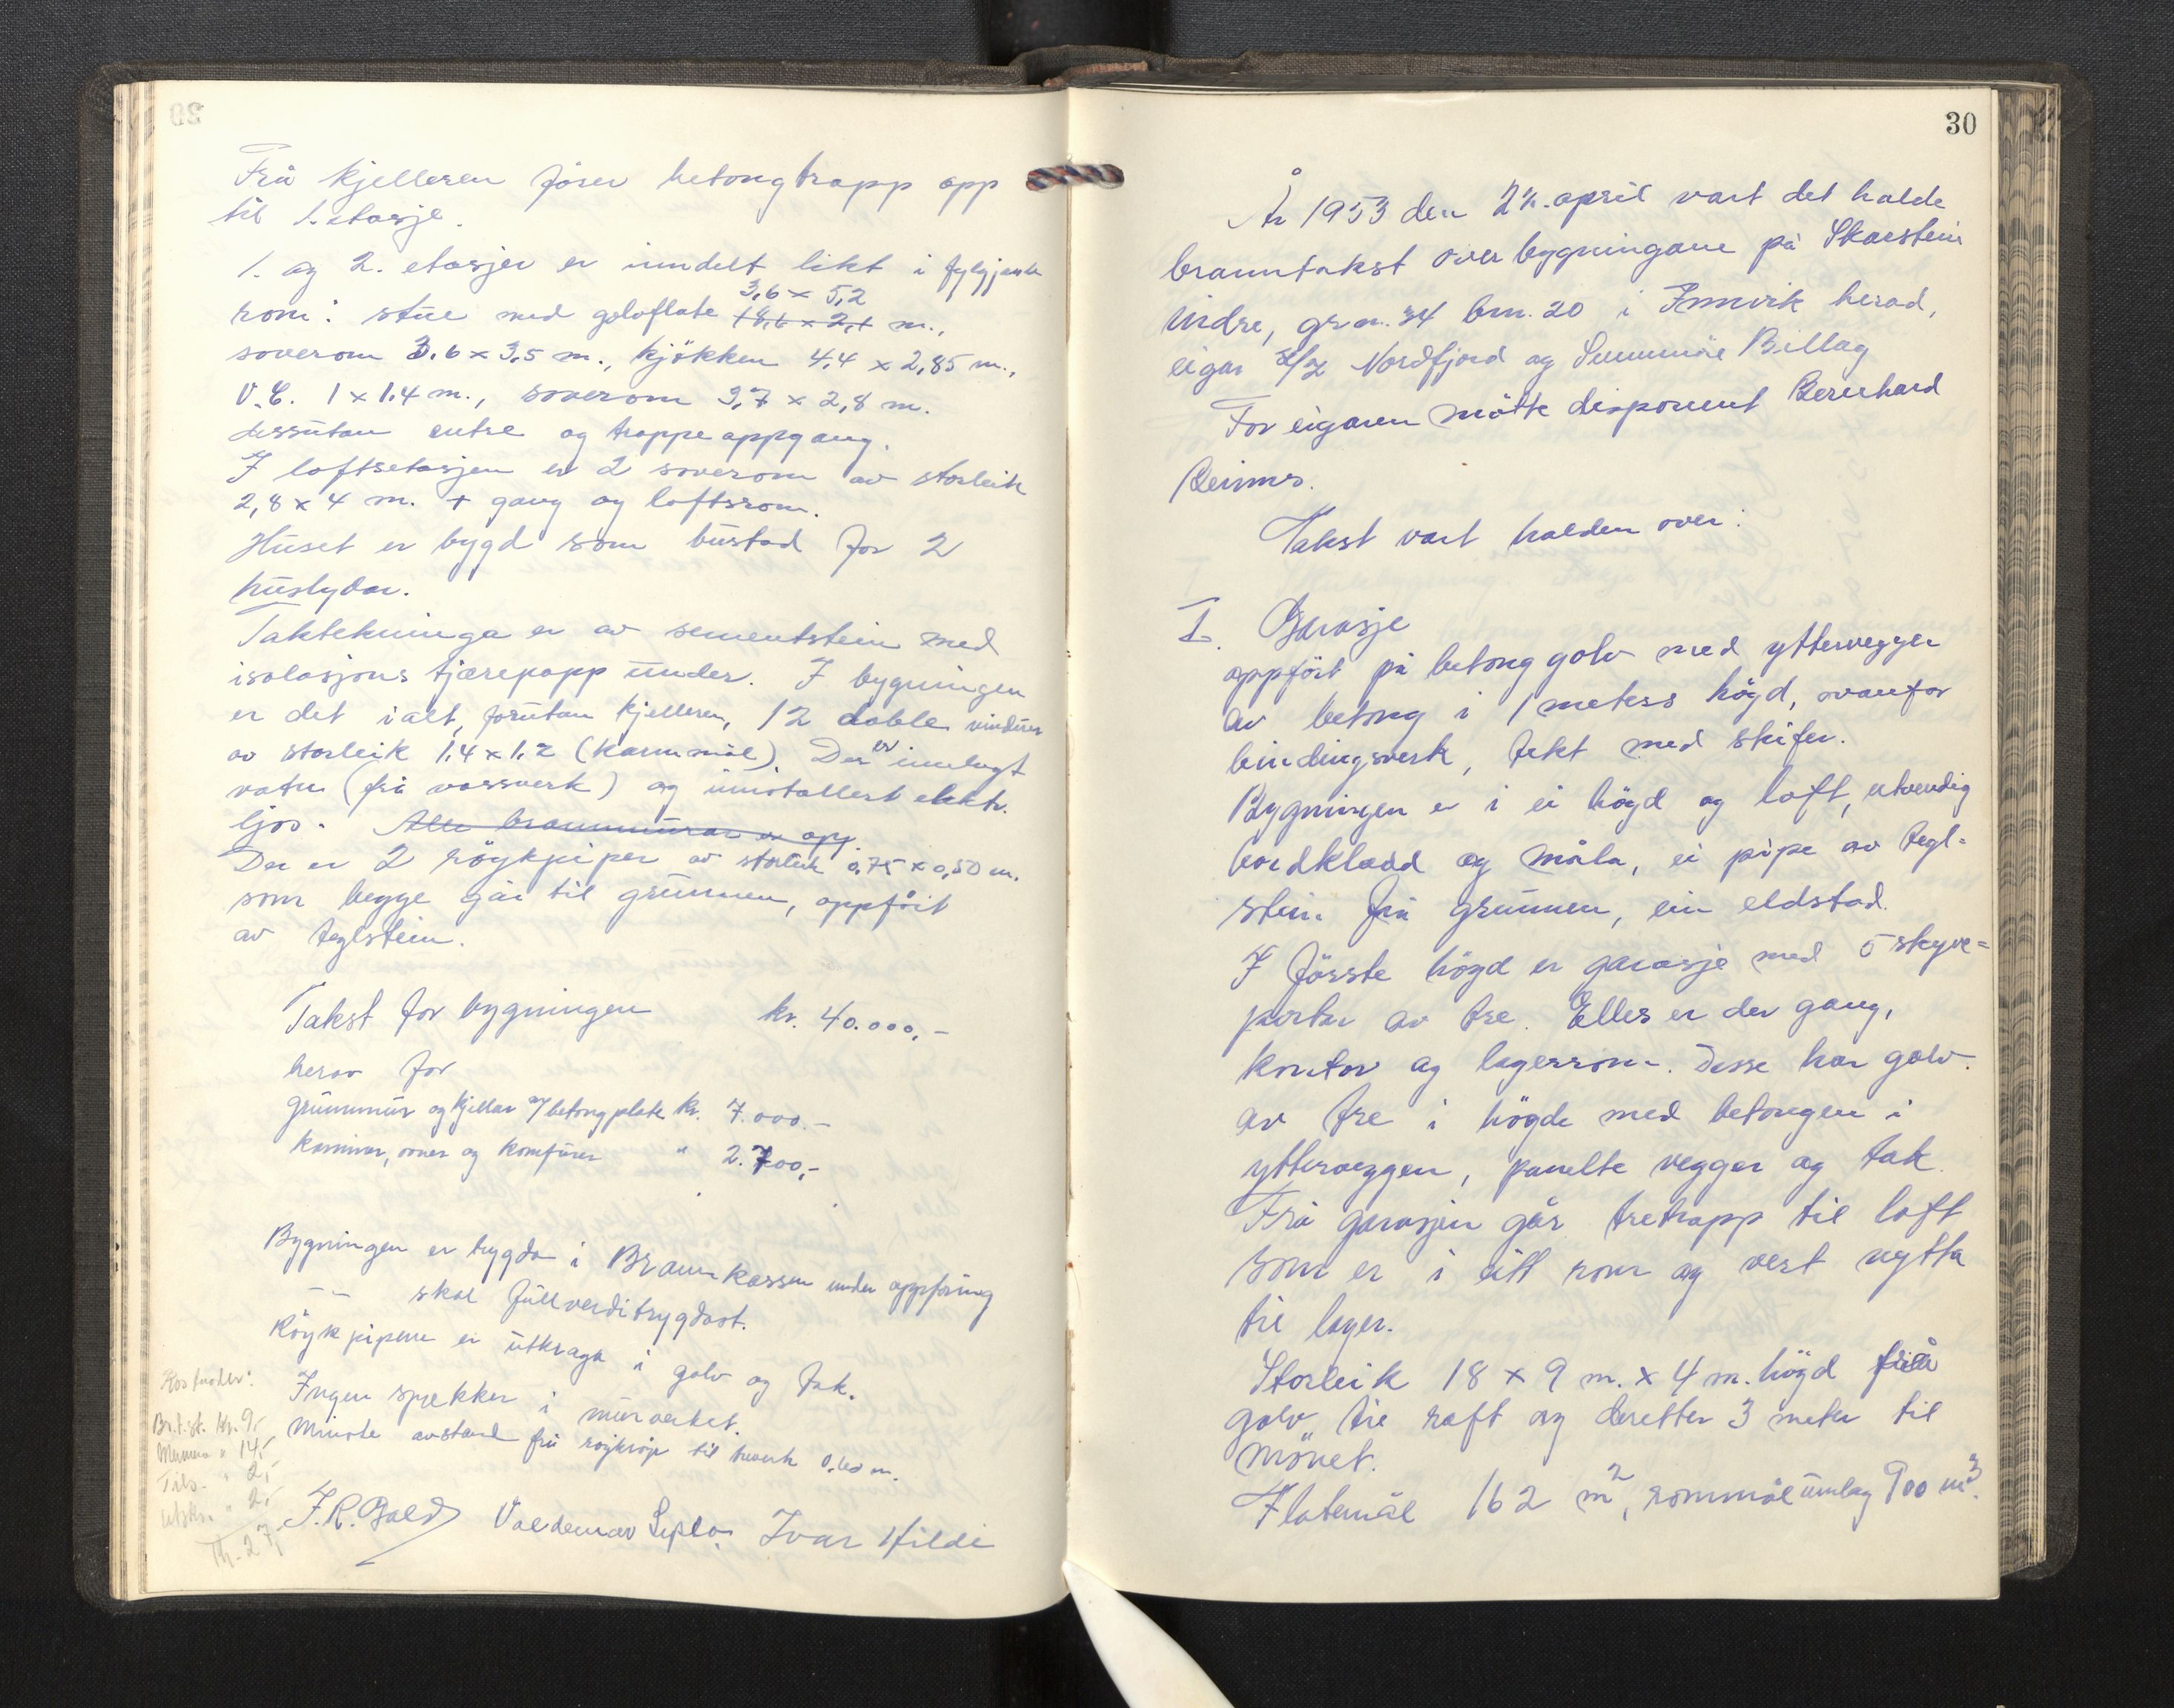 Frå kjelleren förer betongtrapp opp
til 1. etasje.
1. og 2. etasjer er inndelt likt i fylgjande
rom: stue med golvflate 3,6 x 5,2 m.,
soverom 3,6 x 3,5 m., kjökken 4,4 x 2,85 m.,
V.C. 1 x 1,4 m., soverom 3,7 x 2,8 m.
dessutan entre og trappeoppgang.
I loftsetasjen er 2 soverom av storleik
2,8 x 4 m. + gang og loftsrom.
Huset er bygd som bustad for 2
huslydar.
Taktekninga er av sementstein med
isolasjons tjærepapp under. I bygningen
er det i alt, forutan kjelleren, 12 doble vinduer
av storleik 1,4 x 1,2 (karmmål). Der er innlagt
vatn (frå vassverk) og innstallert elektr.
ljos. Alle brannmurar er opp
Der er 2 röykpiper av storleik 0,75 x 0,50 m.
som begge går til grunnen, oppfört
av teglstein.
Takst for bygningen kr. 40.000,-
herav for
grunnmur og kjellar m/betongplate kr. 7.000.-
kaminar, omnar og komfurer " 2.700,-
Bygningen er trygda i Brannkassen under oppföring
-- skal fullverditrygdast.
Röykpipene er utkraga i golv og tak.
Ingen sprekker i murverket.
Minste avstand frå röykrör til treverk 0.60 m.
Kostnader:
Br.t.st. kr. 9,-
14,-
Tils. " 2,-
Utskr. " 2,-
Kr. 27,-
J.R. Bald Valdemar Ivar Hilde
30
År 1953 den 24. april vart det halde
branntakst over bygningane på Skarstein
indre, gr.n. 34 br.n. 20 i Innvik herad,
eigar A/L Nordfjord og Sunnmöre Billag
For eigaren mötte disponent Bernhard
Reimers.
Takst vart halden over:
I. Garasje
oppfört på betonggolv med yttervegger
av betong i 1 meters högd, ovanfor
bindingsverk, tekt med skifer.
Bygningen er i ei högd og loft, utvendig
bordkledd og måla, ei pipe av tegl-
stein frå grunnen, ein eldstad.
I förste högd er garasje med 5 skyve-
portar av tre. Elles er der gang,
kontor og lagerrom. Desse har golv
av tre i högde med betongen i
ytterveggen, panelte vegger og tak.
Frå garasjen går tretrapp til loft
som er i eitt rom og vert nytta
til lager.
Storleik 18 x 9 m. x 4 m. högd frå
golv til raft og deretter 3 meter til
mönet.
Flatemål 162 m², rommål umlag 900 m³.